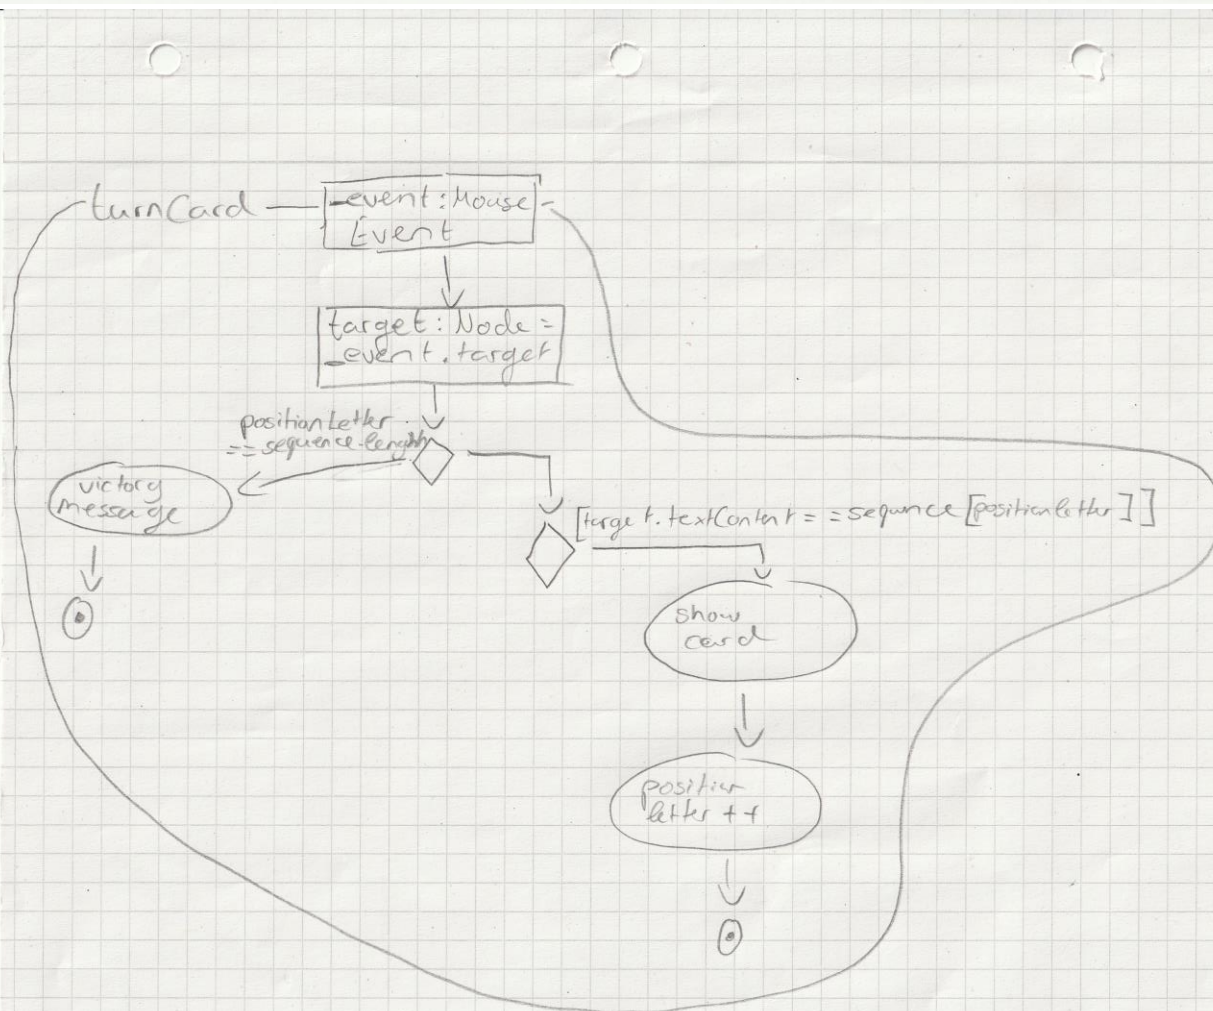 turnCard
_event:Mouse
Event
target:Node =
_event.target
positionLetter
== sequence.length
victory
message
[target.textContent == sequnce [positionletter]]
show
card
position
letter ++